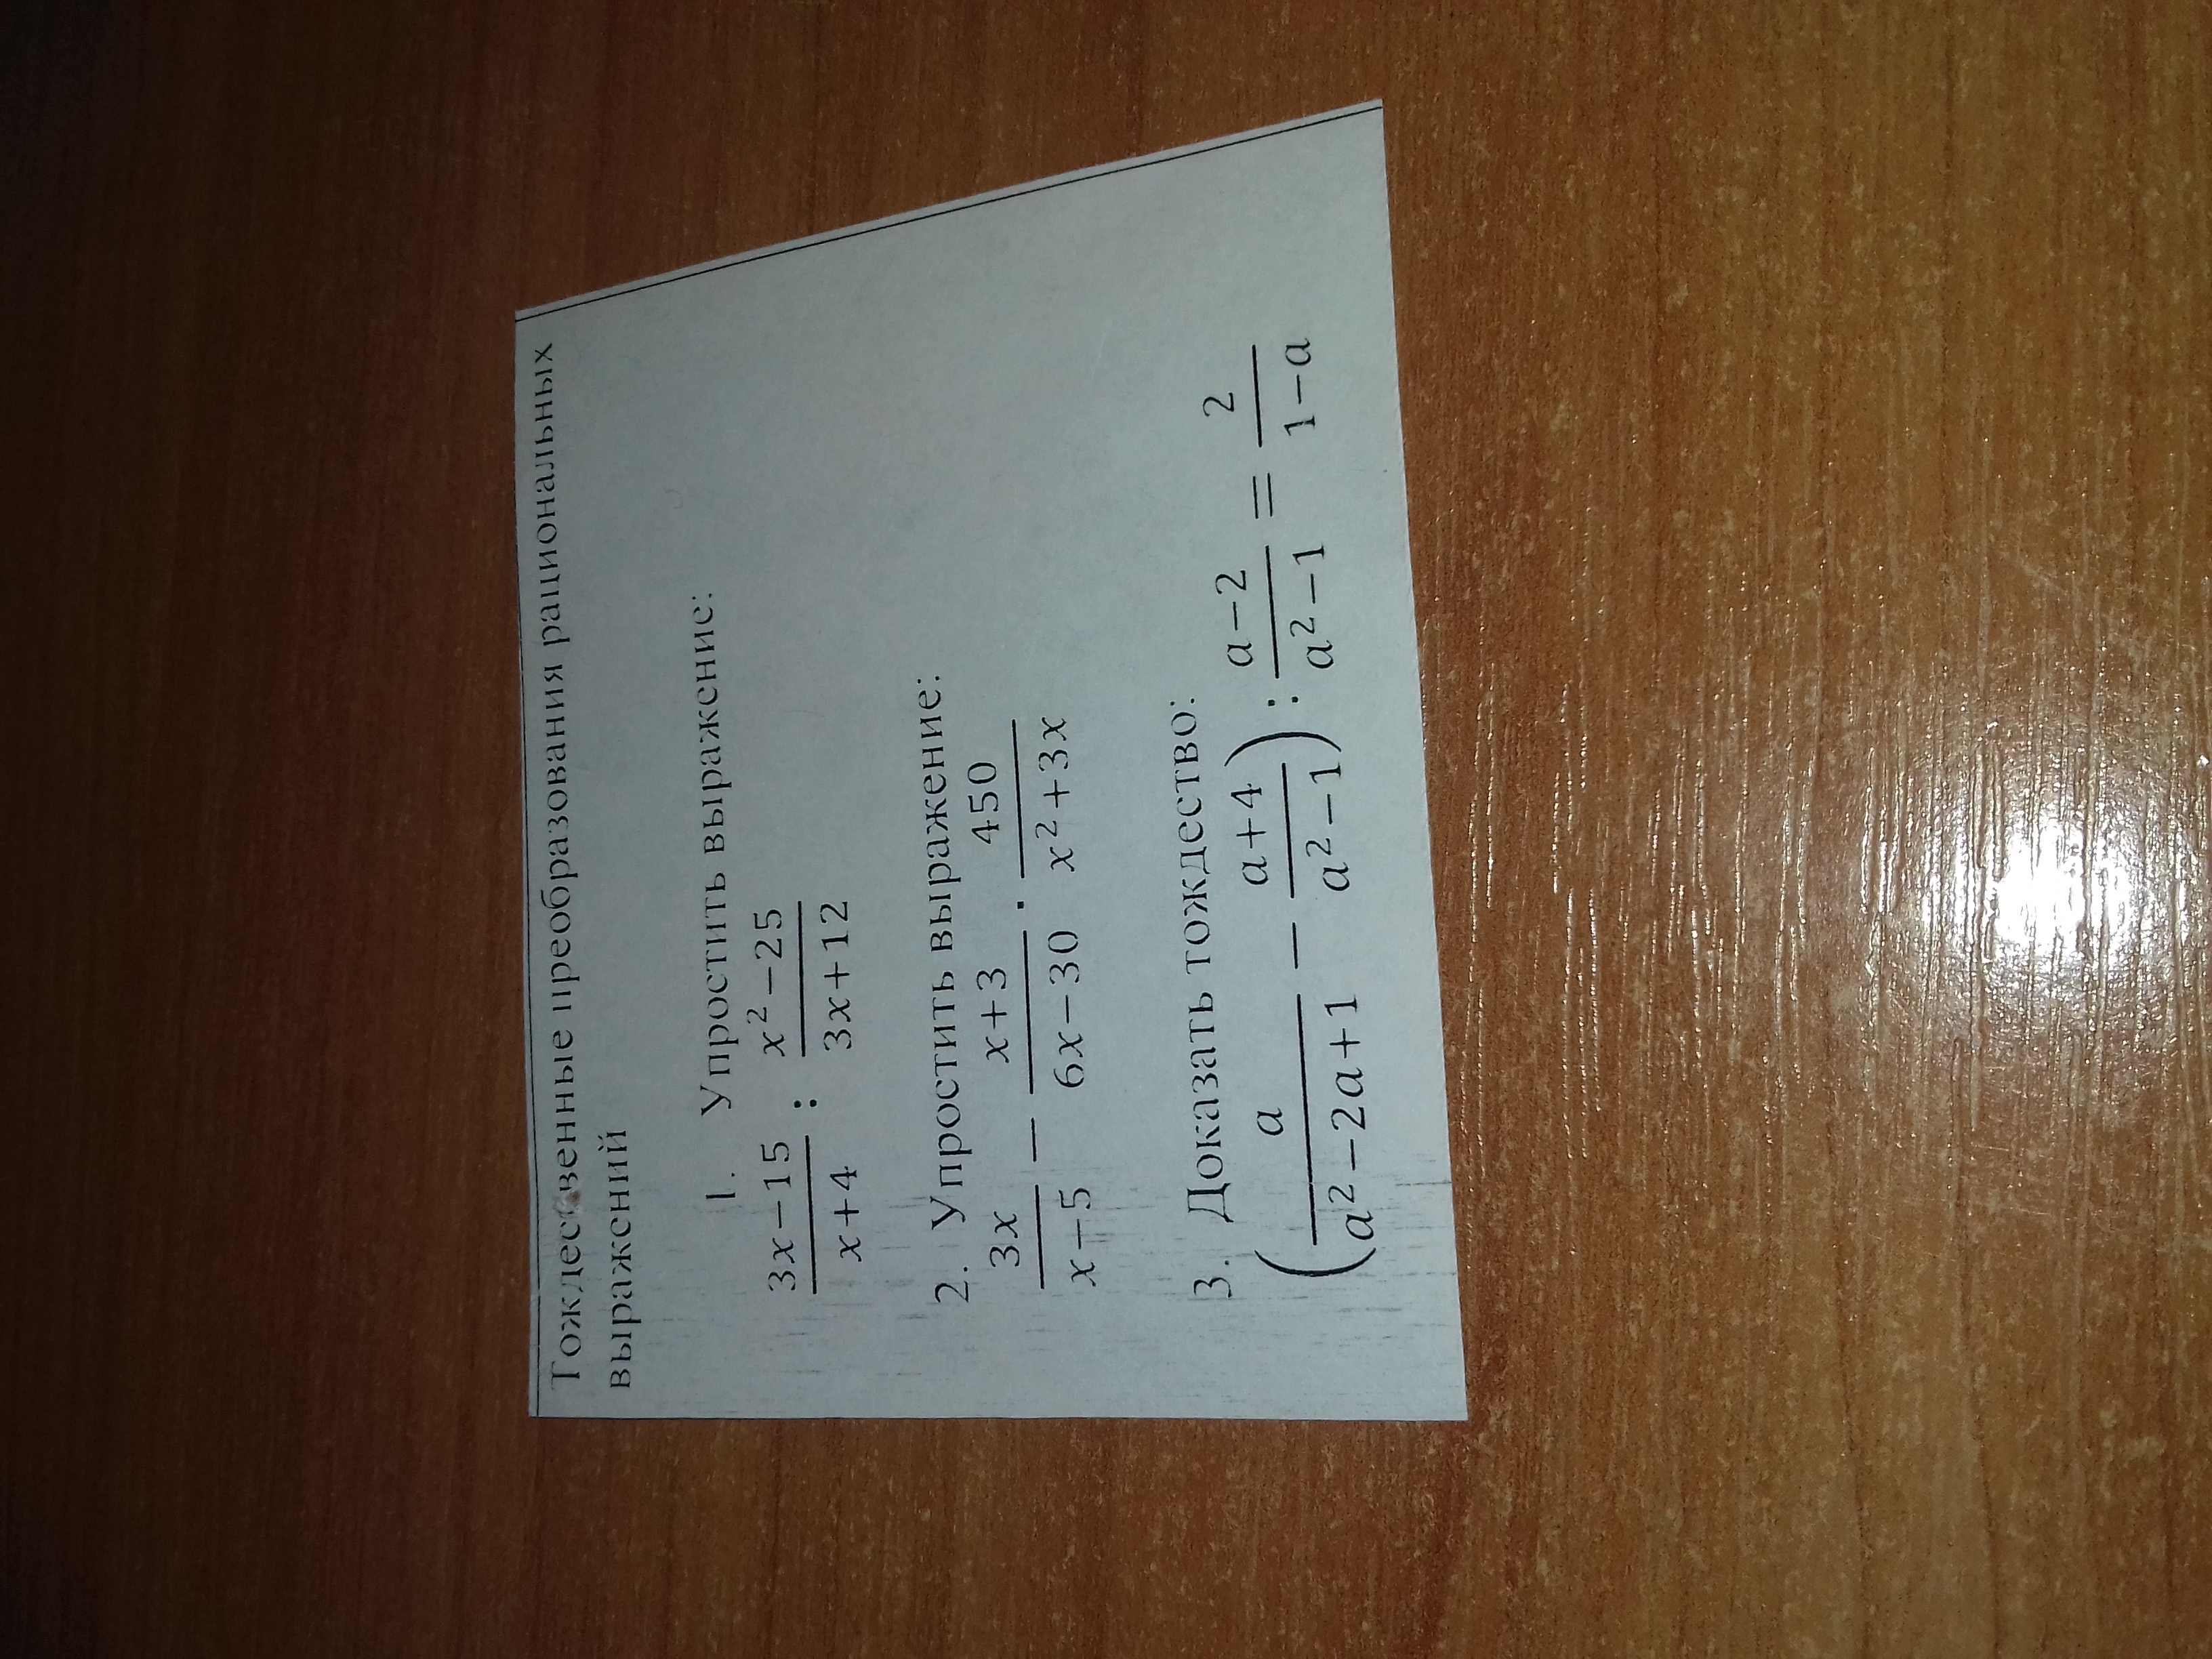 Тождественные преобразования рациональных
выражений
1. Упростить выражение:
(3x−15)/(x+4) : (x²−25)/(3x+12)
2. Упростить выражение:
3x/(x−5) − (x+3)/(6x−30) · 450/(x²+3x)
3. Доказать тождество:
(a/(a²−2a+1) − (a+4)/(a²−1)) : (a−2)/(a²−1) = 2/(1−a)